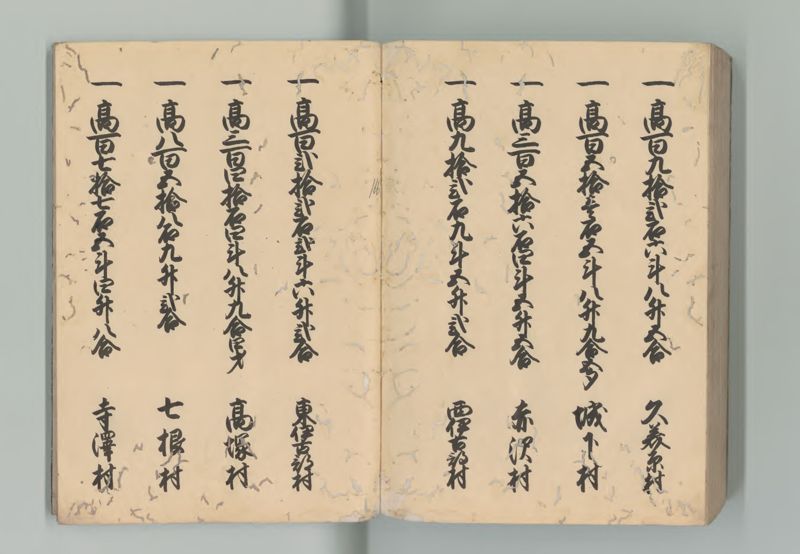 一高百九拾弐石六斗八升五合 久美原村
一高百五拾壱石五斗八升九合五夕 城下村
一高三百五拾六石四斗五升五合 赤沢村
一高九拾弐石九斗五升弐合 西伊古部村
一高百弐拾弐石弐斗六升弐合 東伊古部村
一高三百四拾石四斗八升九合四才 高塚村
一高八百五拾八石九升弐合 七根村
一高百七拾七石五斗四升八合 寺澤村